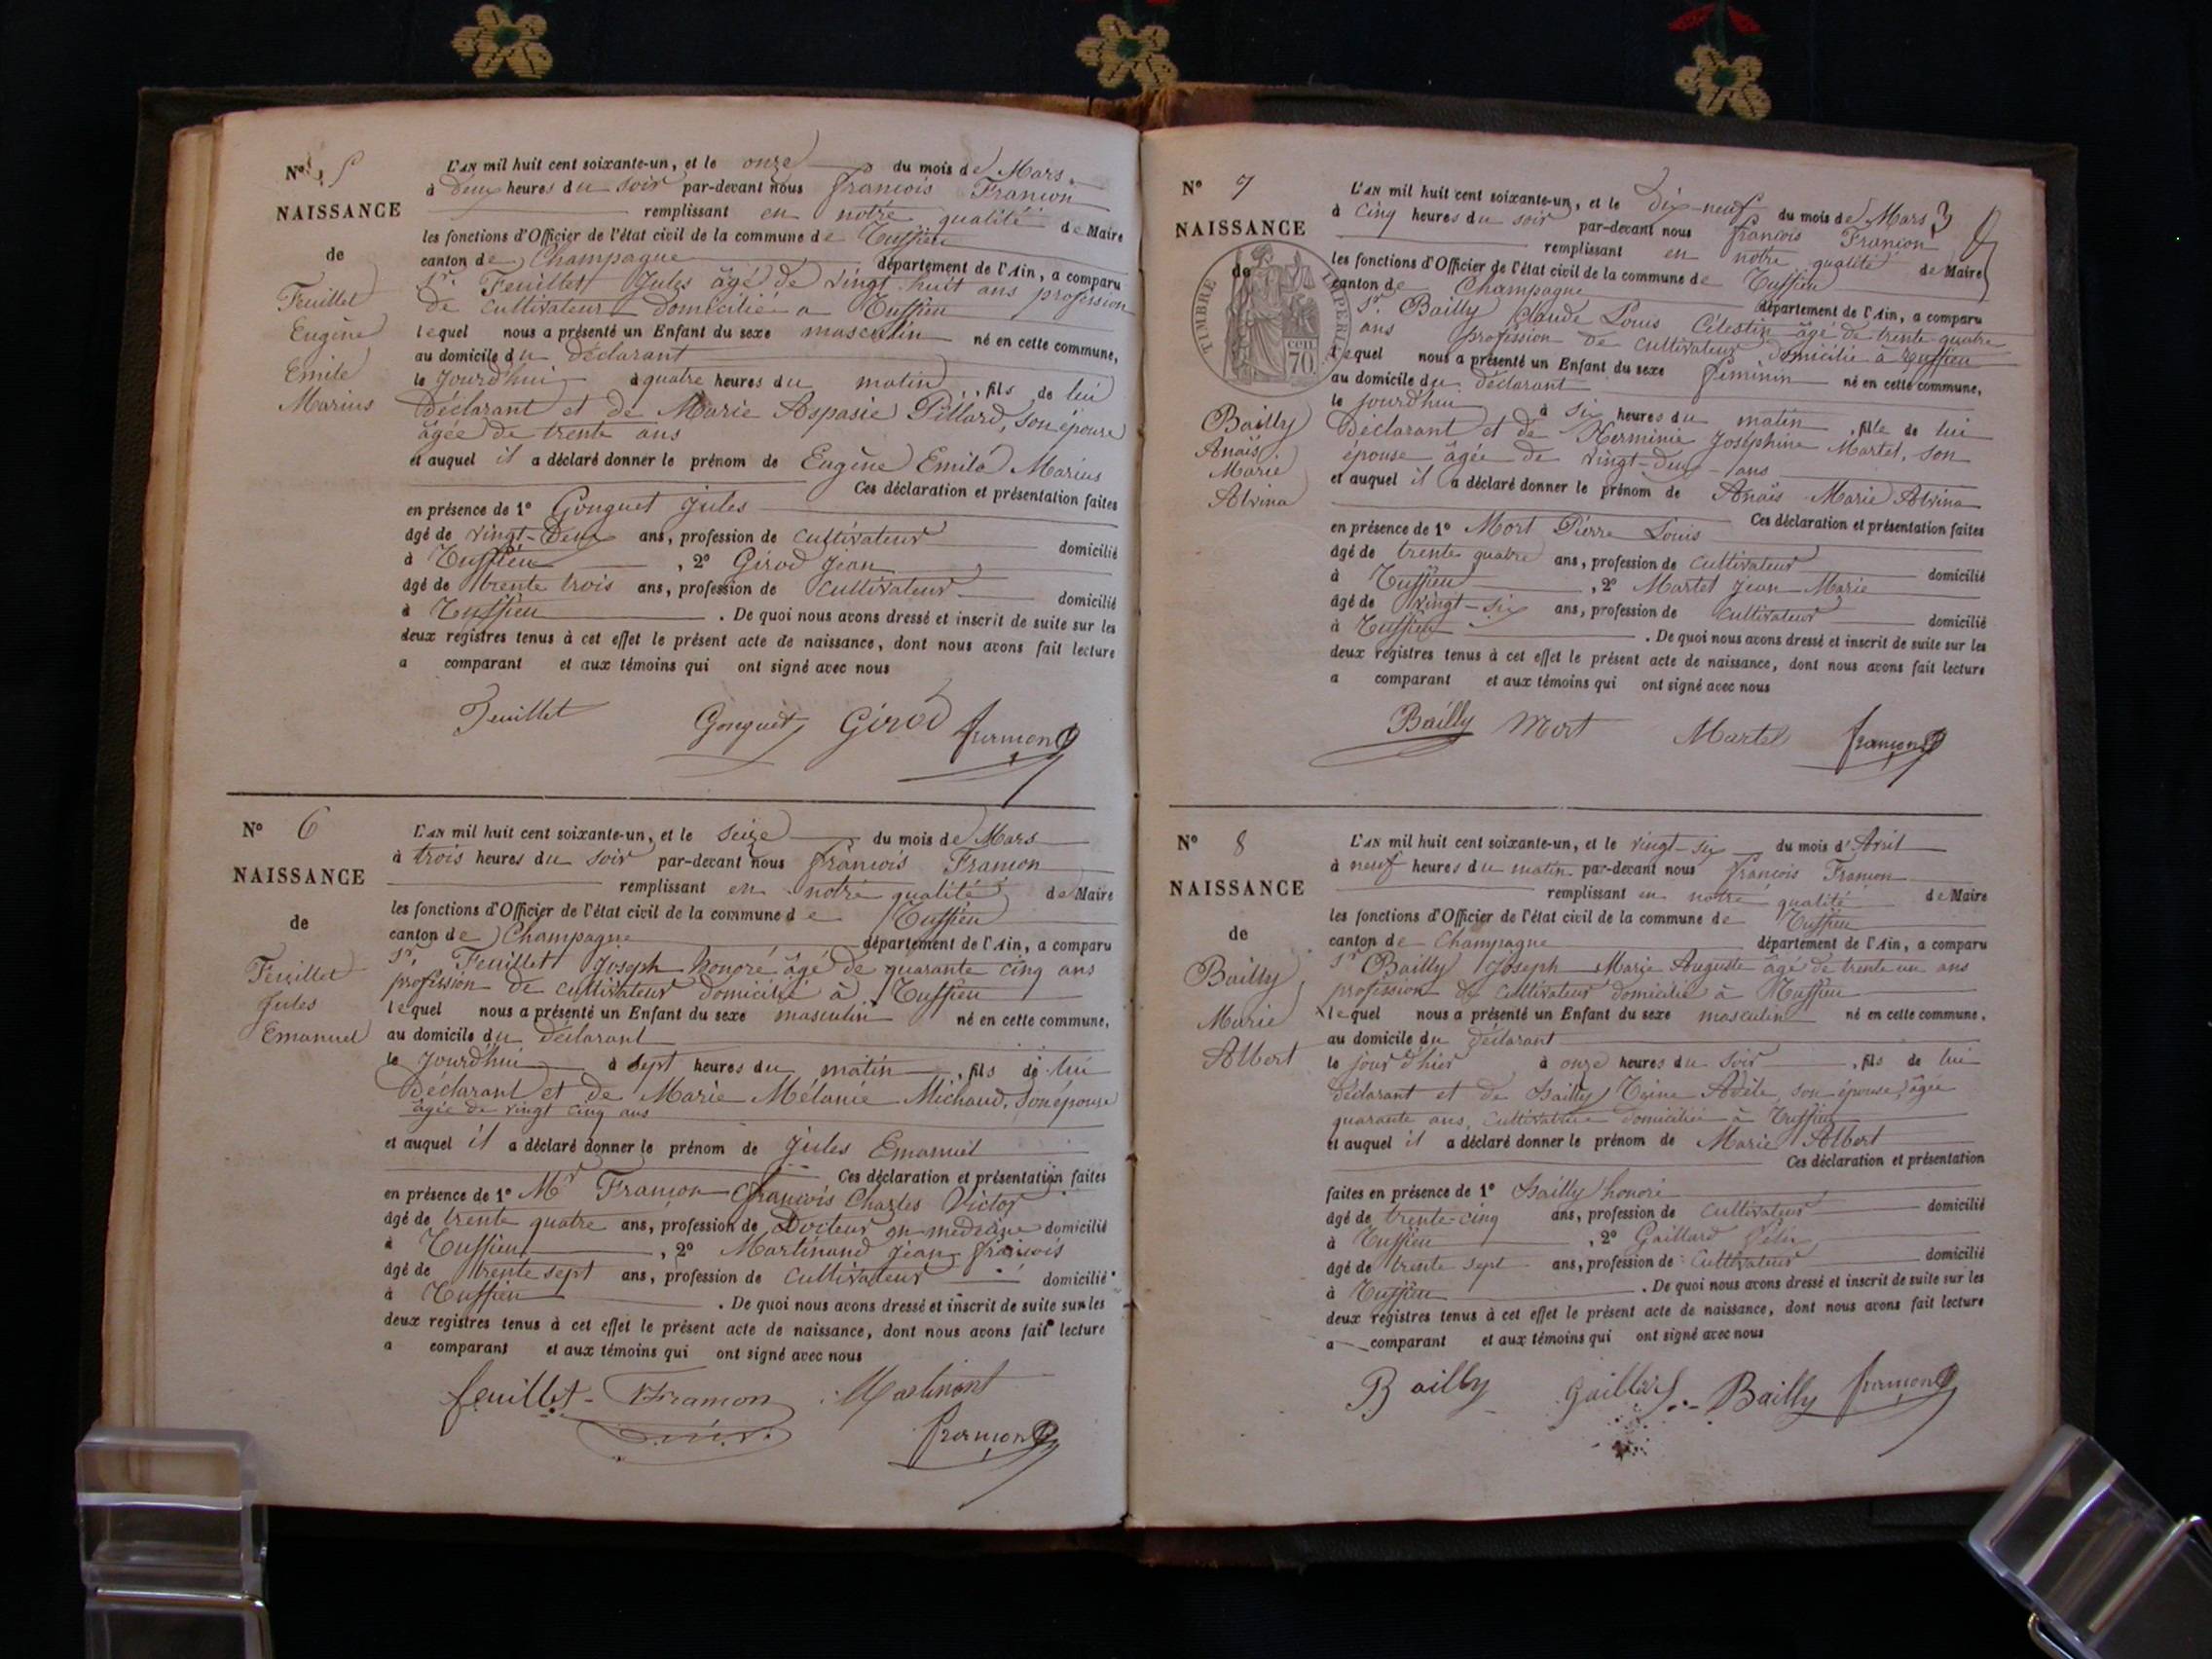 N° 5
NAISSANCE
de
Feuillet
Eugène
Emile
Marius
L'AN mil huit cent soixante-un, et le onze du mois de Mars
à deux heures du soir par-devant nous françois Françon
remplissant en notre qualité de Maire
les fonctions d'Officier de l'état civil de la commune de
canton de Champagne département de l'Ain, a comparu
Sr. Feuillet Jules âgé de vingt huit ans profession
de cultivateur domicilié a
lequel nous a présenté un Enfant du sexe masculin né en cette commune,
au domicile du déclarant
le jourd'hui à quatre heures du matin, fils de lui
déclarant et de Marie Aspasie Pillard, son épouse
âgée de trente ans
et auquel il a déclaré donner le prénom de Eugène Emile Marius
Ces déclaration et présentation faites
en présence de 1° Gonguet Jules
âgé de vingt-deux ans, profession de cultivateur domicilié
à , 2° Girod Jean
âgé de trente trois ans, profession de cultivateur domicilié
à . De quoi nous avons dressé et inscrit de suite sur les
deux registres tenus à cet effet le présent acte de naissance, dont nous avons fait lecture
a comparant et aux témoins qui ont signé avec nous
Feuillet Gonguet Girod françon
N° 6
NAISSANCE
de
Feuillet
Jules
Emanuel
L'AN mil huit cent soixante-un, et le seize du mois de Mars
à trois heures du soir par-devant nous françois Françon
remplissant en notre qualité de Maire
les fonctions d'Officier de l'état civil de la commune de
canton de Champagne département de l'Ain, a comparu
Sr. Feuillet Joseph honoré âgé de quarante cinq ans
profession de cultivateur domicilié à
lequel nous a présenté un Enfant du sexe masculin né en cette commune,
au domicile du déclarant
le jourd'hui à sept heures du matin, fils de lui
déclarant et de Marie Mélanie Michaud, son épouse
âgée de vingt cinq ans
et auquel il a déclaré donner le prénom de Jules Emanuel
Ces déclaration et présentation faites
en présence de 1° Mr Françon françois Charles Victor
âgé de trente quatre ans, profession de Docteur en medecine domicilié
à , 2° Martinand jean françois
âgé de trente sept ans, profession de cultivateur domicilié
à . De quoi nous avons dressé et inscrit de suite sur les
deux registres tenus à cet effet le présent acte de naissance, dont nous avons fait lecture
a comparant et aux témoins qui ont signé avec nous
feuillet Françon Martinant
françon
N° 7
NAISSANCE
de
TIMBRE IMPERIAL
CEN. 70
Bailly
Anaïs
Marie
Alvina
L'AN mil huit cent soixante-un, et le dix-neuf du mois de Mars 3
à cinq heures du soir par-devant nous françois Françon
remplissant en notre qualité de Maire
les fonctions d'Officier de l'état civil de la commune de
canton de Champagne département de l'Ain, a comparu
Sr. Bailly Claude Louis Célestin âgé de trente quatre
ans profession de cultivateur domicilié à
lequel nous a présenté un Enfant du sexe féminin né en cette commune,
au domicile du déclarant
le jourd'hui à six heures du matin, fille de lui
déclarant et de Herminie Joséphine Martel, son
épouse âgée de vingt-deux ans
et auquel il a déclaré donner le prénom de Anaïs Marie Alvina
Ces déclaration et présentation faites
en présence de 1° Mort Pierre Louis
âgé de trente quatre ans, profession de cultivateur domicilié
à , 2° Martel jean Marie
âgé de vingt-six ans, profession de cultivateur domicilié
à . De quoi nous avons dressé et inscrit de suite sur les
deux registres tenus à cet effet le présent acte de naissance, dont nous avons fait lecture
a comparant et aux témoins qui ont signé avec nous
Bailly Mort Martel françon
N° 8
NAISSANCE
de
Bailly
Marie
Albert
L'AN mil huit cent soixante-un, et le vingt-six du mois d'Avril
à neuf heures du matin par-devant nous françois Françon
remplissant en notre qualité de Maire
les fonctions d'Officier de l'état civil de la commune de
canton de Champagne département de l'Ain, a comparu
Sr Bailly Joseph Marie Auguste âgé de trente un ans
profession de cultivateur domicilié à
lequel nous a présenté un Enfant du sexe masculin né en cette commune,
au domicile du déclarant
le jour d'hier à onze heures du soir, fils de lui
déclarant et de Bailly Adèle, son épouse, âgée
quarante ans, cultivatrice domiciliée à
et auquel il a déclaré donner le prénom de Marie Albert
Ces déclaration et présentation
faites en présence de 1° Bailly honoré
âgé de trente-cinq ans, profession de cultivateur domicilié
à , 2° Gaillard
âgé de trente sept ans, profession de cultivateur domicilié
à . De quoi nous avons dressé et inscrit de suite sur les
deux registres tenus à cet effet le présent acte de naissance, dont nous avons fait lecture
a comparant et aux témoins qui ont signé avec nous
Bailly Gaillard Bailly françon